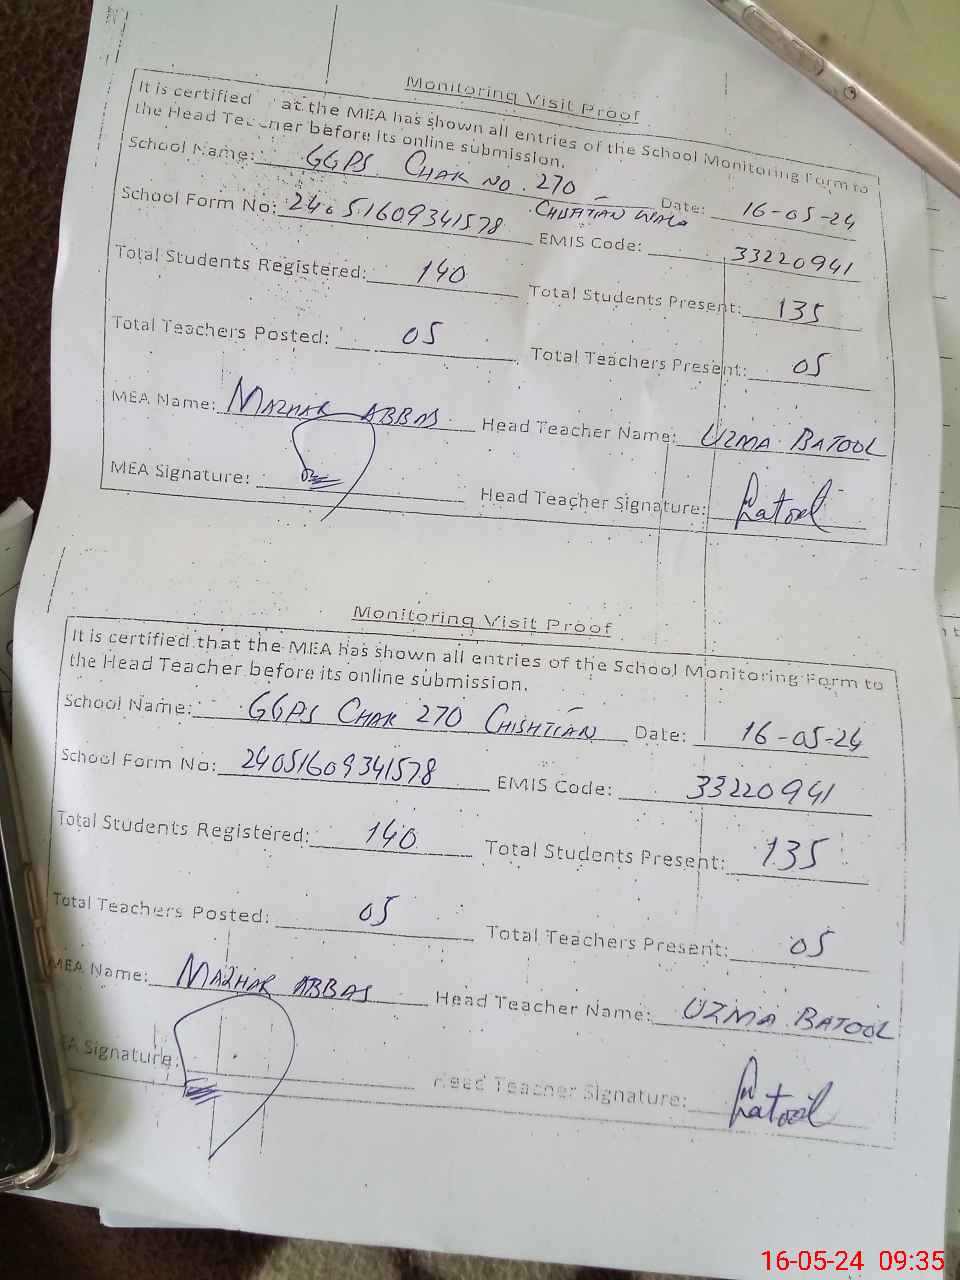 Monitoring Visit Proof
It is certified at the MEA has shown all entries of the School Monitoring Form to
the Head Teacher before its online submission.
School Name: GGPS CHAK NO. 270 Date: 16-05-24
CHISHTIAN WALA
School Form No: 24051609341578 EMIS Code: 33220941
Total Students Registered: 140 Total Students Present: 135
Total Teachers Posted: 05 Total Teachers Present: 05
MEA Name: MAZHAR ABBAS Head Teacher Name: UZMA BATOOL
MEA Signature: Head Teacher Signature: Batool
Monitoring Visit Proof
It is certified that the MEA has shown all entries of the School Monitoring Form to
the Head Teacher before its online submission.
School Name: GGPS CHAK 270 CHISHTIAN Date: 16-05-24
School Form No: 24051609341578 EMIS Code: 33220941
Total Students Registered: 140 Total Students Present: 135
Total Teachers Posted: 05 Total Teachers Present: 05
MEA Name: MAZHAR ABBAS Head Teacher Name: UZMA BATOOL
EA Signature: Head Teacher Signature: Batool
16-05-24 09:35